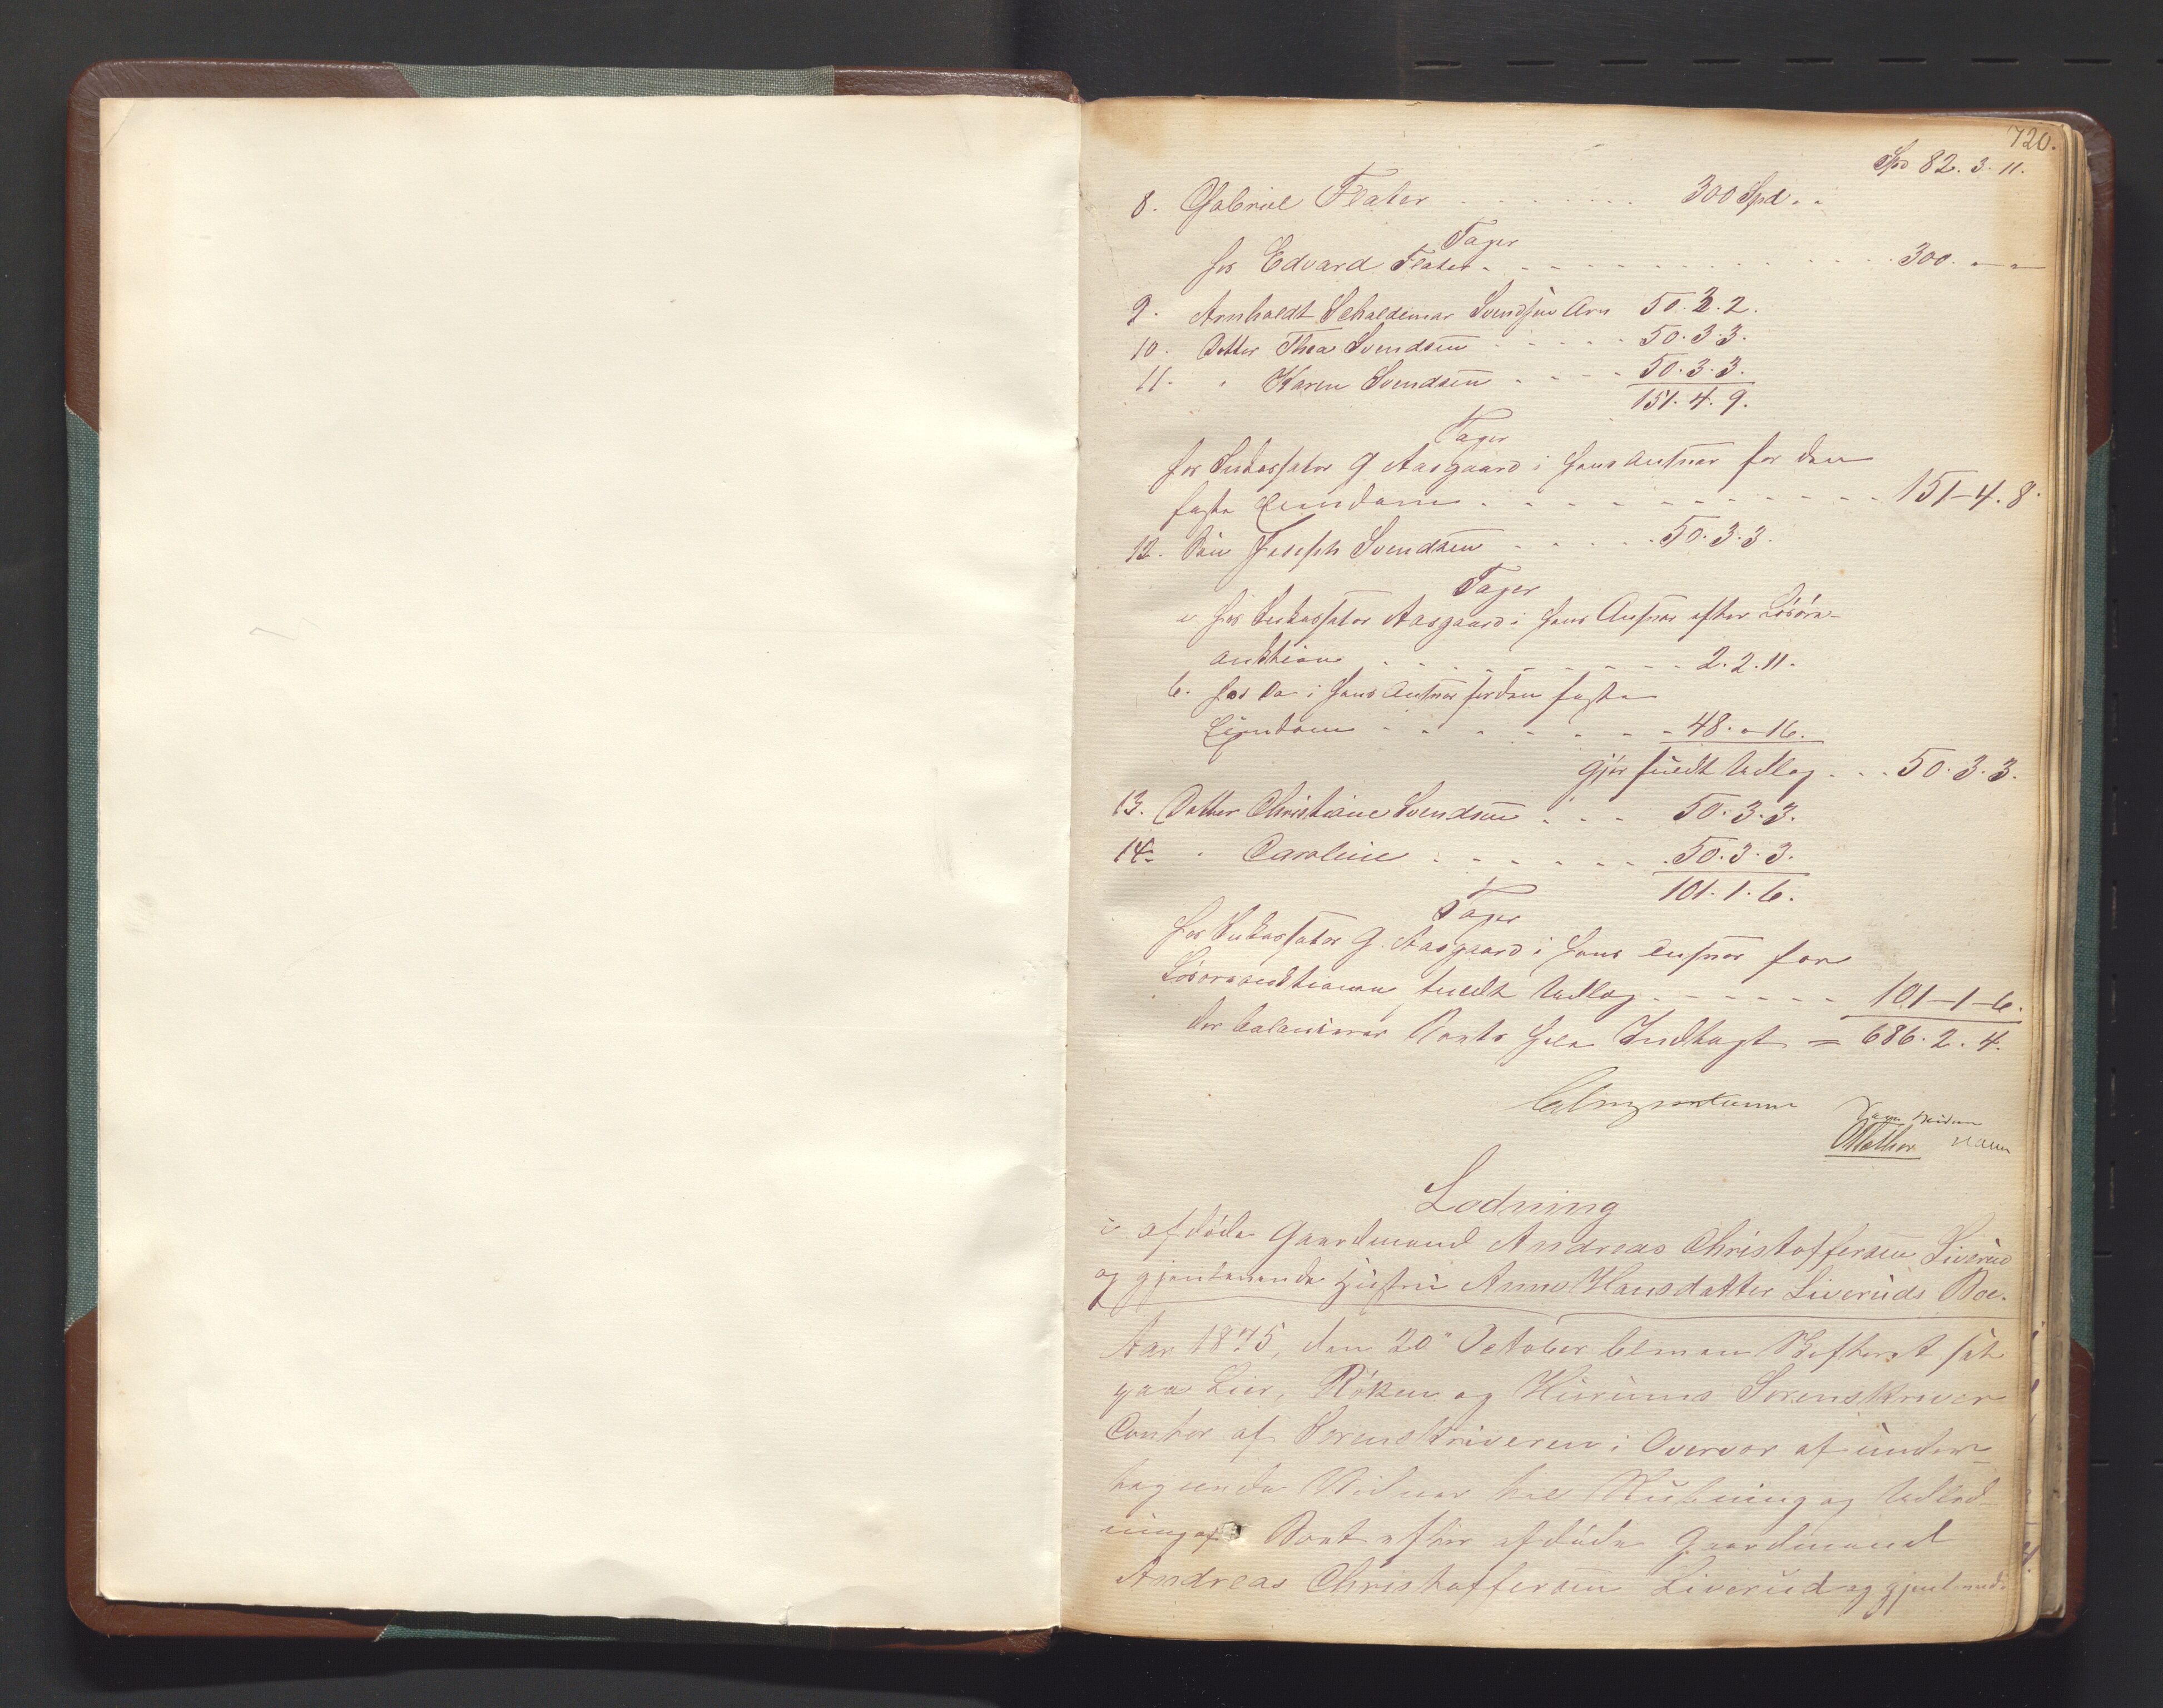 720.
Spd 82. 3. 11.
8. Gabriel Flater - - - - - - - 300 Spd. "
Tager
hos Edvard Flater - - - - - - - - 300. " "
9. Arnholdt Schaldemar Svendsen Arv 50. 3. 2.
10. Datter Thea Svendsen - - - - - 50. 3. 3.
11. " Karen Svendsen - - - - 50. 3. 3.
151. 4. 9.
Tager
hos Inkassator G. Aasgaard i hans Ansvar for den
faste Eiendom - - - - - - - - - 151 - 4. 8.
12. Søn Joseph Svendsen - - - - - 50. 3. 3.
Tager
a. hos Inkassator Aasgaard i hans Ansvar efter Løsøre-
auktion - - - - - - - - 2. 2. 11.
b. hos Do i hans Ansvar for den faste
Eiendom - - - - - - 48. " 16.
gjør fuldt Udlæg - - - 50. 3. 3.
13. Datter Christiane Svendsen - - - 50. 3. 3.
14. " Caroline - - - - - - 50. 3. 3.
101. 1. 6.
Tager
hos Inkassator G. Aasgaard i hans Ansvar for
Løsøreauktionen fuldt Udlæg - - - - - - 101 - 1 - 6.
der balancerer Boets hele Indtægt = 686. 2. 4.
Lodning
i afdøde Gaardmand Andreas Christoffersen Liverud
og gjenlevende Hustru Anne Hansdatter Liveruds Boe.
Aar 1875, den 20" October blev en Skifteret sat
paa Lier, Røken og Hurums Sorenskriver
Contor af Sorenskriveren i Overvær af under-
tegnende Vidner til Slutning og Udlod-
ning af Boet efter afdøde Gaardmand
Andreas Christoffersen Liverud og gjenlevende